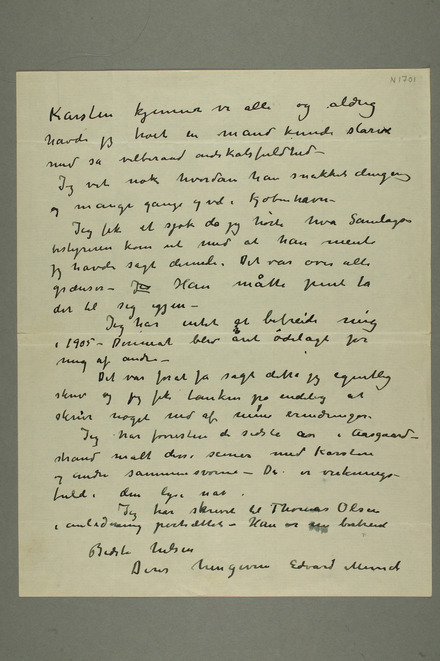 N 1701
Karsten kjenner vi alle og aldrig
havde jeg troet en mand kunde skrive
med så velberaad ondskabsfuldhed –
Jeg vet nok hvordan han snakket dengang
og mange gange og vd i Kjøbenhavn –
Jeg fik et sjok da jeg hørte hva Samlags
bestyreren kom ut med at han mente
jeg havde sagt derude. Det var over alle
grænser – Han måtte jeg ta
det til sig igjen –
Jeg har intet at bebreide mig
i 1905 – Dommat blev året ødelagt for
mig af andre –
Det var forat få sagt dette jeg egentlig
skrev og jeg fik tanken på endelig at
skrive noget ned af mine erindringer
Jeg har forresten de sidste aar i Aasgaard-
strand malt disse scener med Karsten
og andre sammensvorne – De er virknings-
fulde i den lyse nat.
Jeg har skrevet til Thomas Olsen
i anledning portrættet – Han er beredt
Bedste hilsen
Deres hengivne Edvard Munch